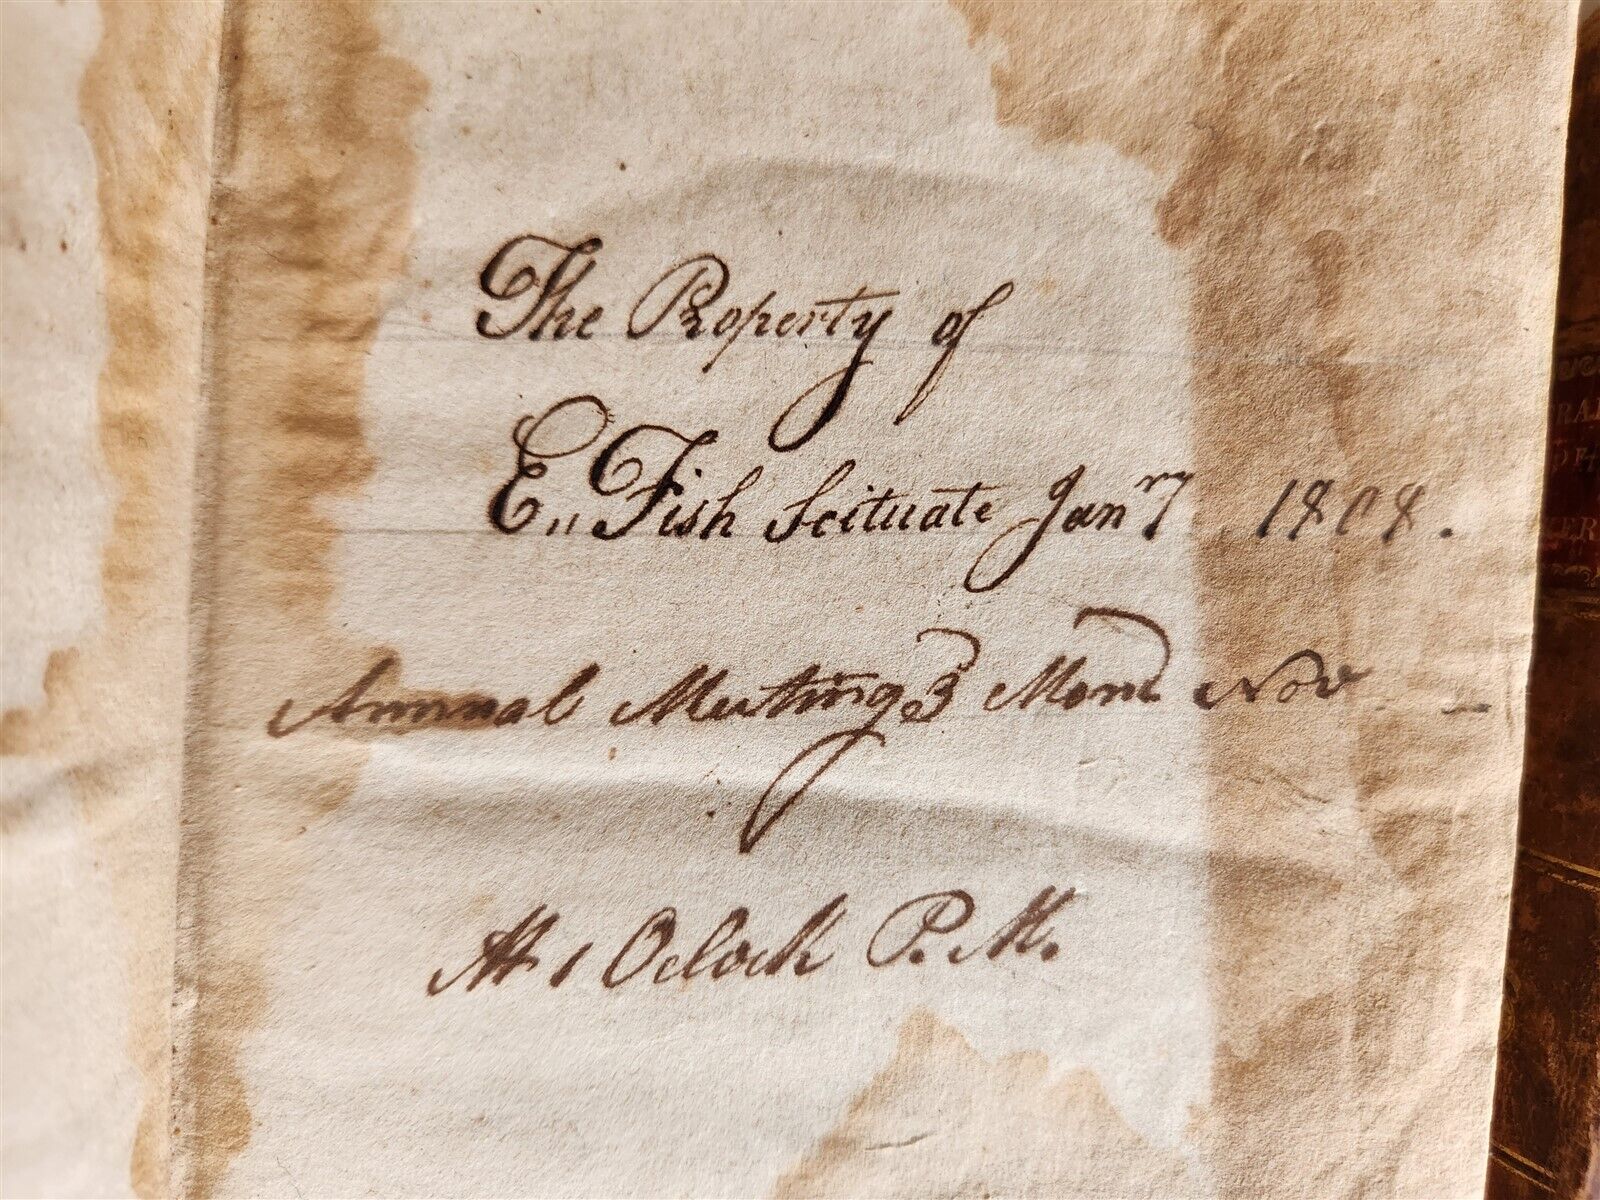 The Property of
E,, Fish Scituate Janry 1808.
Annual Meeting 3 Mond Nov
At 1 Oclock P.M.